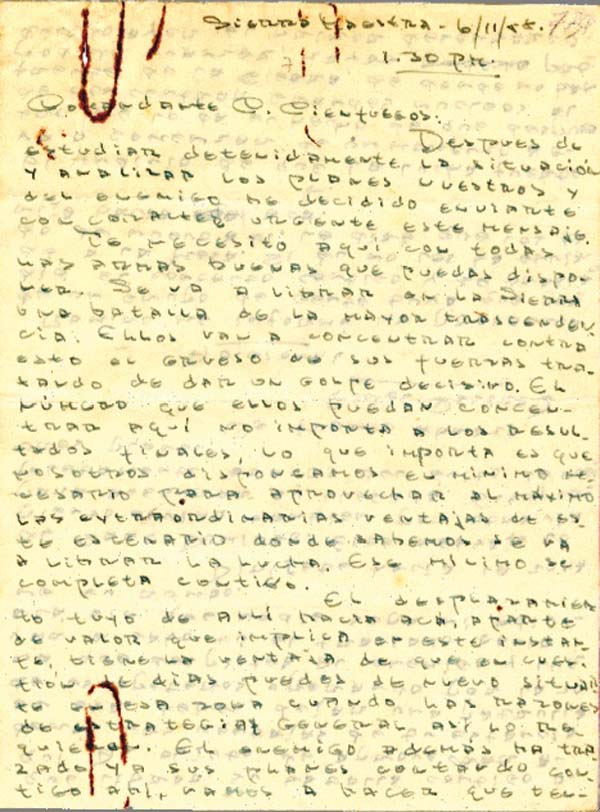 Sierra Maestra - 6/11/58.
1.30 PM.
Comandante C. Cienfuegos:
Despues de
estudiar detenidamente la situación
y analizar los planes nuestros y
del enemigo he decidido enviarte
con carácter urgente este mensaje.
Te necesito aquí con todas
las armas buenas que puedas dispo-
ner. Se va a librar en la Sierra
una batalla de la mayor trascenden-
cia. Ellos van a concentrar contra
esto el grueso de sus fuerzas tra-
tando de dar un golpe decisivo. El
número que ellos puedan concen-
trar aquí no importa a los resul-
tados finales, lo que importa es que
nosotros dispongamos el mínimo ne-
cesario para aprovechar al máximo
las extraordinarias ventajas de es-
te escenario donde sabemos se va
a librar la lucha. Ese mínimo se
completa contigo.
El desplazamien
to tuyo de allí hacia acá, aparte
de valor que implica en este instan-
te, tiene la ventaja de que en cues-
tión de días puedes de nuevo situar
te en esa zona cuando las razones
de estrategia general así lo re
quieran. El enemigo además ha tra-
zado ya sus planes contando con-
tigo ahí, vamos a hacer que ten-